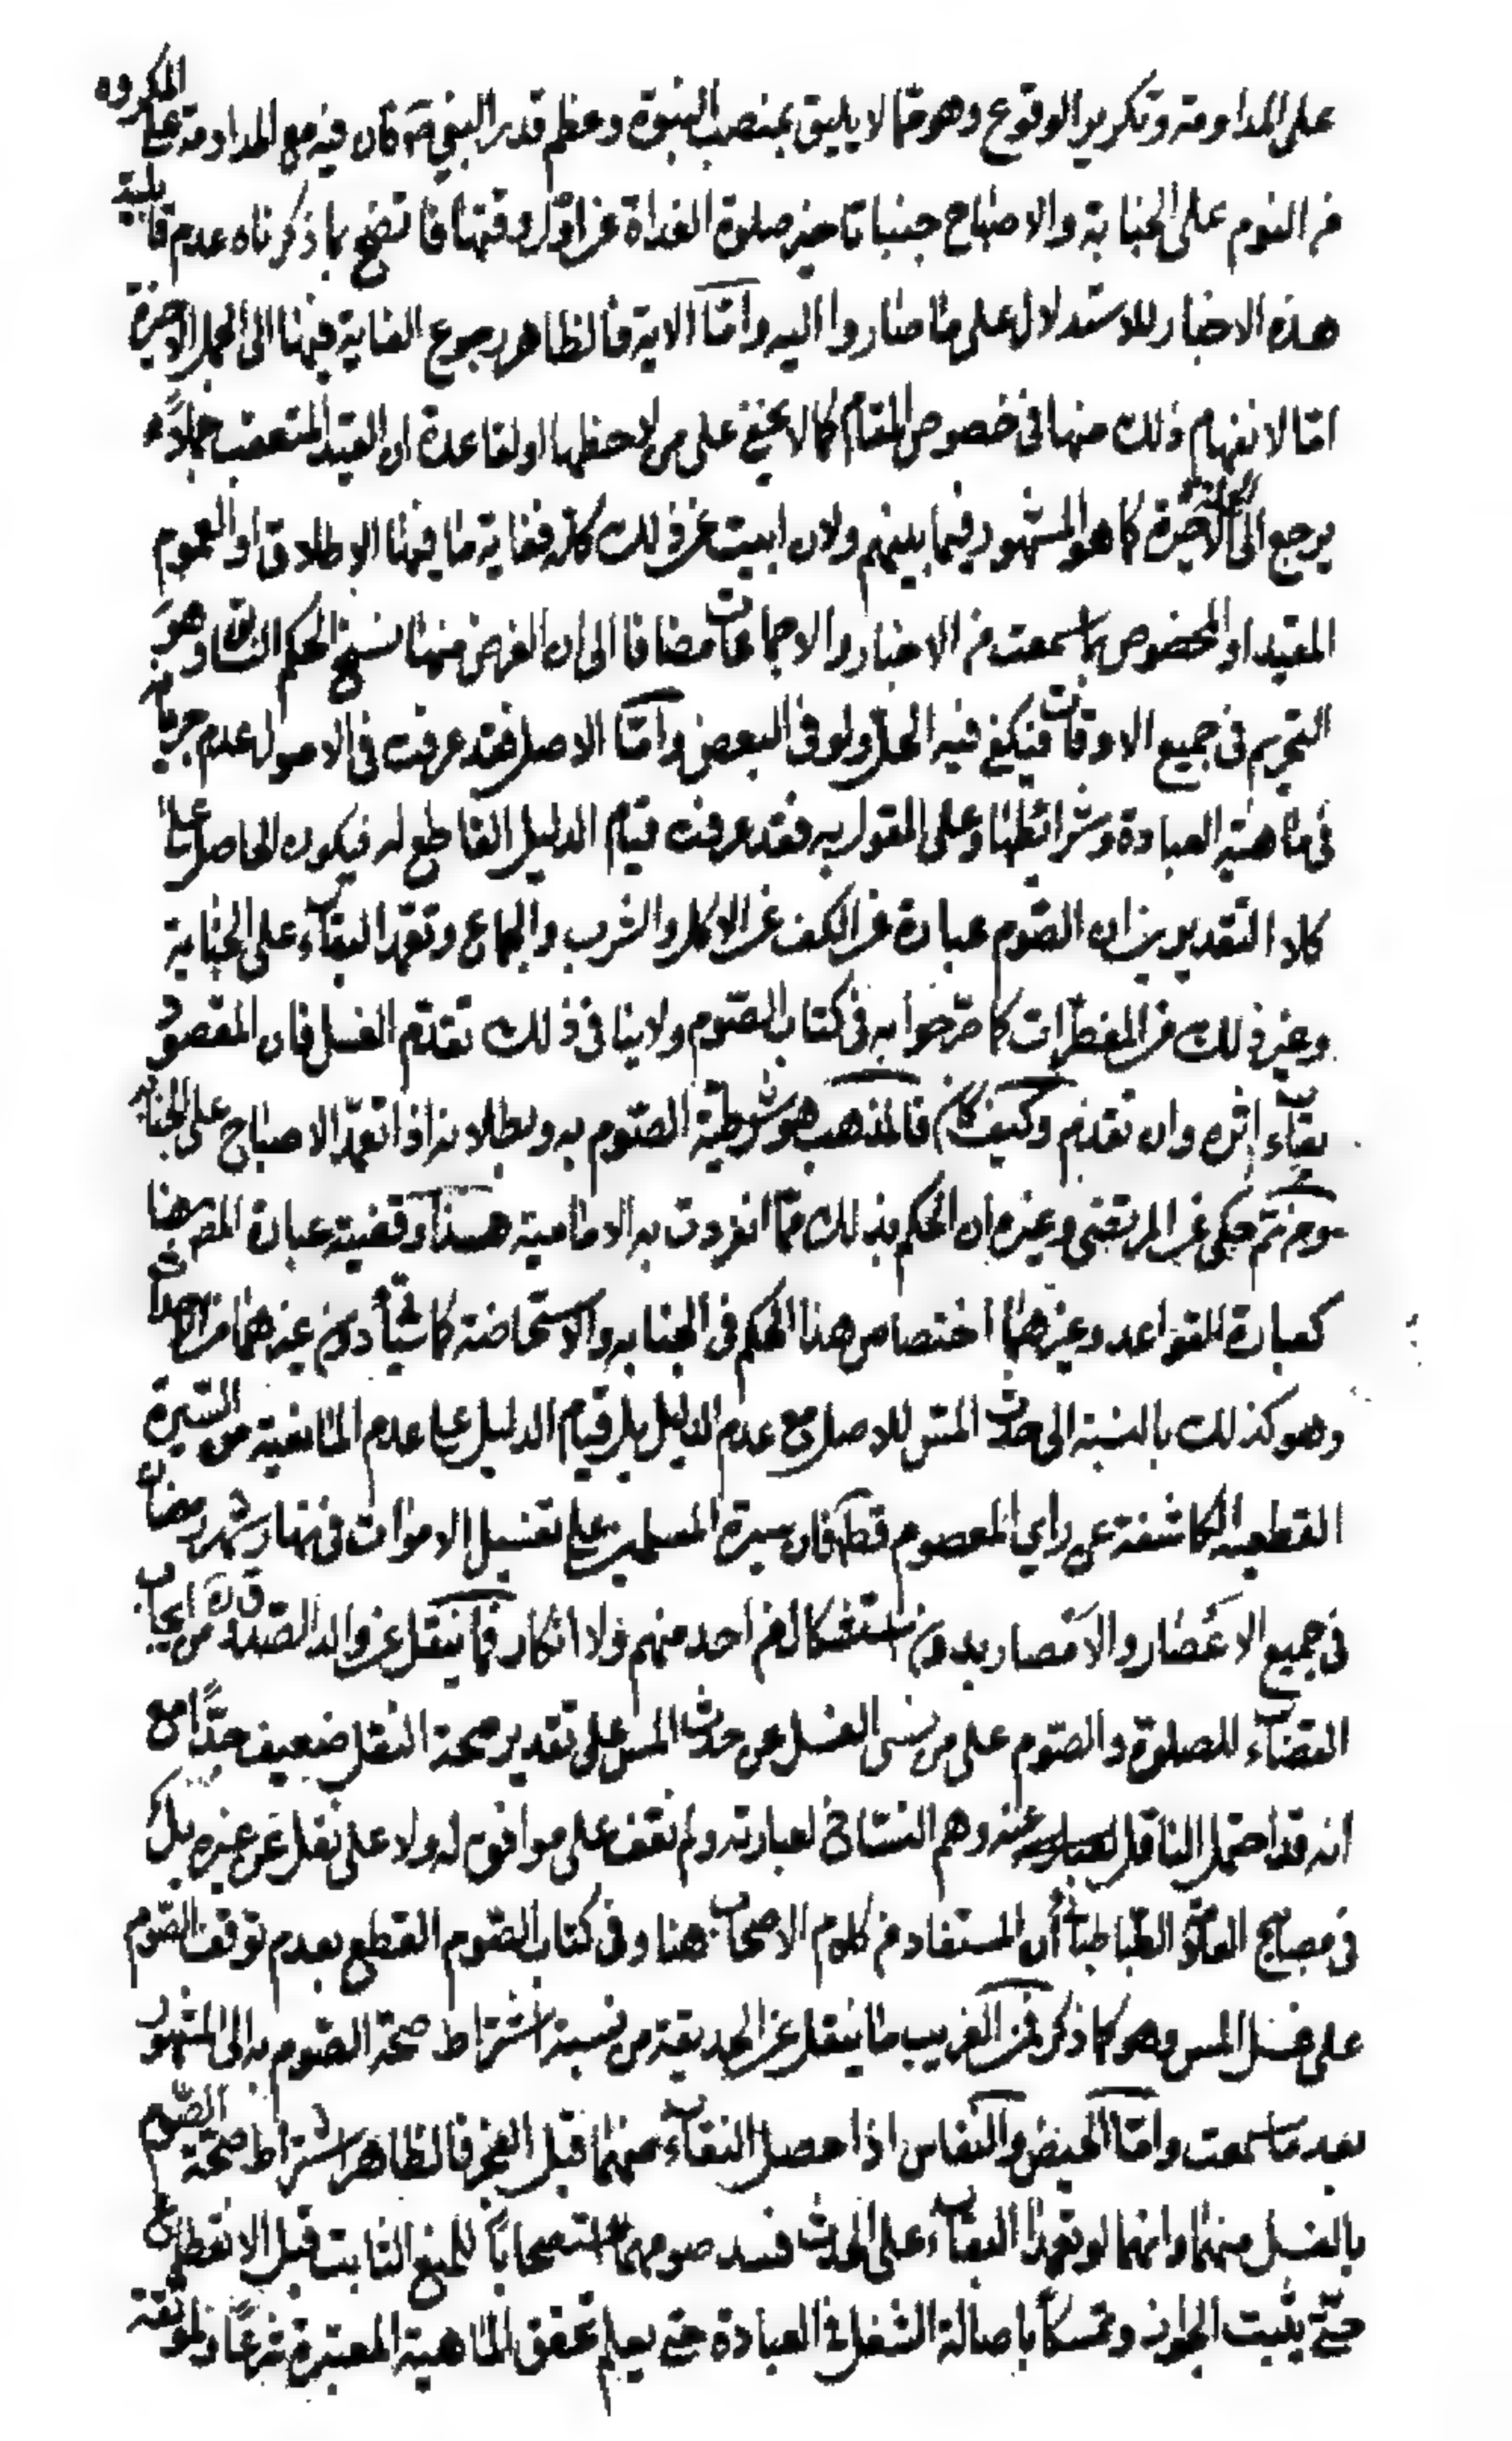 على المداومة وتكرير الوقوع وهو مما لا يليق بمنصب النبوة وعظم قدر النبي ص كان فيه مع المداومة على المكروه
من النوم على الجنابة والاصباح جنبا تاخير صلوة الغداة عن اول وقتها فاتضح بما ذكرناه عدم قابلية
هذه الاخبار للاستدلال على ما صاروا اليه واما الاية فالظاهر رجوع الغاية فيها الى الجمل الاخيرة
اما لانفهام ذلك منها فى خصوص المقام كما لا يخفى على من لاحظها او لقاعدة ان القيد المتعقب جملا
يرجع الى الاخيرة كما هو المشهور فيما بينهم ولان ابيت عن ذلك كله فغاية ما فيها الاطلاق او العموم
المقيد او المخصوص بما سمعت من الاخبار والاجماعات مضافا الى ان الغرض منها نسخ الحكم السابق وهو
التحريم فى جميع الاوقات فيكفى فيه الحل ولو فى البعض واما الاصل فقد عرفت فى الاصول عدم جريانه
فى ماهية العبادة وشرائطها وعلى القول به فقد عرفت قيام الدليل القاطع له فيكون الحاصل على
كلا التقديرين ان الصوم عبارة عن الكف عن الاكل والشرب والجماع وتعمد البقاء على الجنابة
وغير ذلك من المفطرات كما صرحوا به فى كتاب الصوم ولا ينافى ذلك تقدم الغسل فان المقصود
بقاء اثره وان تقدم وكيف كان فالمذهب هو شرطية الصوم به وبطلانه اذا تعمد الاصباح على الجنابة
ومن ثم حكى عن المرتضى وغيره ان الحكم بذلك مما انفردت به الامامية هذا وقضية عبارة المص هنا
كعبارة القواعد وغيرهما اختصاص هذا الحكم فى الجنابه والاستحاضة كما سياتى دون غيرهما من الاحداث
وهو كذلك بالنسبة الى حدث المس للاصل مع عدم الدليل بل قيام الدليل على عدم المانعية من السيرة
القطعيه الكاشفة عن راي المعصوم قطعا فان سيرة المسلمين على تغسيل الاموات فى نهار شهر رمضان
فى جميع الاعصار والامصار بدون استشكال من احد منهم ولا انكار فما ينقل عن والد الصدوق ره من ايجاب
القضاء للصلوة والصوم على من نسى الغسل من حدث المس على تقدير صحة النقل ضعيف جدا مع
انه قد احتمل الناقل عنه وهم النساخ لعبارته ولم نقف على موافق له ولا على نقل عن غيره بل
فى مصابيح العلامة الطباطبائى ان المستفاد من كلام الاصحاب هنا وفى كتاب الصوم القطع بعدم توقف الصوم
على غسل المس وهو كما ذكر فمن الغريب ما ينقل عن الحديقة من نسبة اشتراط صحة الصوم به الى المشهور
بعد ما سمعت واما الحيض والنفاس اذا حصل النقاء منهما قبل الفجر فالظاهر اشتراط صحة الصوم
بالغسل منهما وانهما لو تعمدا البقاء على الحدث فسد صومهما استصحابا للمنع الثابت قبل الانقطاع
حتى يثبت الجواز وتمسكا باصالة الشغل فى العبادة حتى يعلم تحقق الماهية المعتبرة شرعا ولموثقة